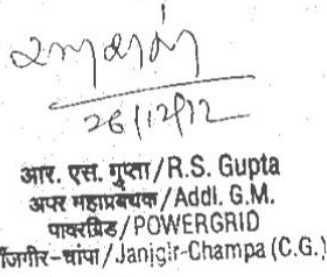 26/12/12
आर. एस. गुप्ता/R.S. Gupta
अपर महाप्रबंधक/Addl. G.M.
पावरग्रिड/POWERGRID
जांजगीर-चांपा/Janjgir-Champa (C.G.)